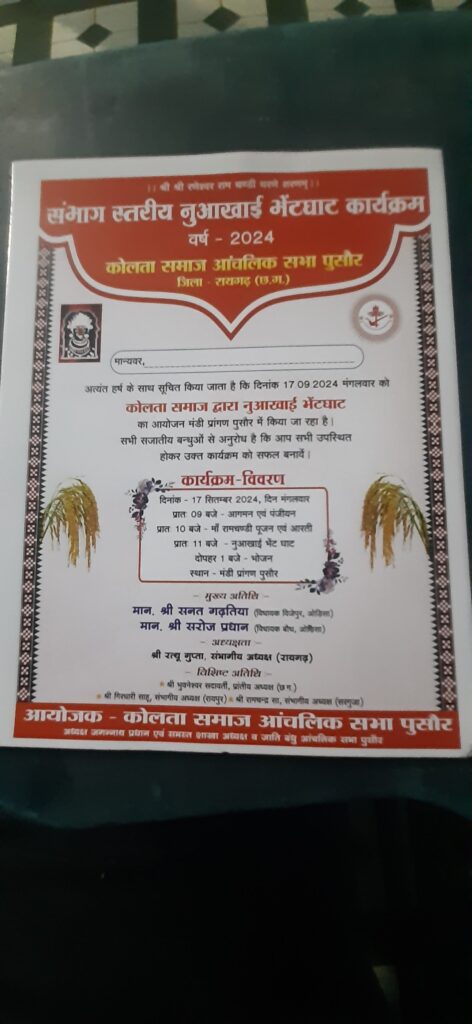 ।। श्री श्री रणेश्वर राम चण्डी चरणे शरणम् ।।
संभाग स्तरीय नुआखाई भेंटघाट कार्यक्रम
वर्ष - 2024
कोलता समाज आंचलिक सभा पुसौर
जिला - रायगढ़ (छ.ग.)
मान्यवर,
अत्यंत हर्ष के साथ सूचित किया जाता है कि दिनांक 17.09.2024 मंगलवार को
कोलता समाज द्वारा नुआखाई भेंटघाट
का आयोजन मंडी प्रांगण पुसौर में किया जा रहा है।
सभी सजातीय बन्धुओं से अनुरोध है कि आप सभी उपस्थित
होकर उक्त कार्यक्रम को सफल बनावें।
कार्यक्रम-विवरण
दिनांक - 17 सितम्बर 2024, दिन मंगलवार
प्रातः 09 बजे - आगमन एवं पंजीयन
प्रातः 10 बजे - माँ रामचण्डी पूजन एवं आरती
प्रातः 11 बजे - नुआखाई भेंट घाट
दोपहर 1 बजे - भोजन
स्थान - मंडी प्रांगण पुसौर
- मुख्य अतिथि -
मान. श्री सनत गढ़तिया (विधायक विजेपुर, ओड़िसा)
मान. श्री सरोज प्रधान (विधायक बौध, ओड़िसा)
- अध्यक्षता -
श्री रत्थू गुप्ता, संभागीय अध्यक्ष (रायगढ़)
- विशिष्ट अतिथि -
* श्री भुवनेश्वर सदावर्ती, प्रांतीय अध्यक्ष (छ.ग.)
* श्री गिरधारी साहू, संभागीय अध्यक्ष (रायपुर) * श्री रामचन्द्र सा, संभागीय अध्यक्ष (सरगुजा)
आयोजक - कोलता समाज आंचलिक सभा पुसौर
अध्यक्ष जगन्नाथ प्रधान एवं समस्त शाखा अध्यक्ष व जाति बंधु आंचलिक सभा पुसौर